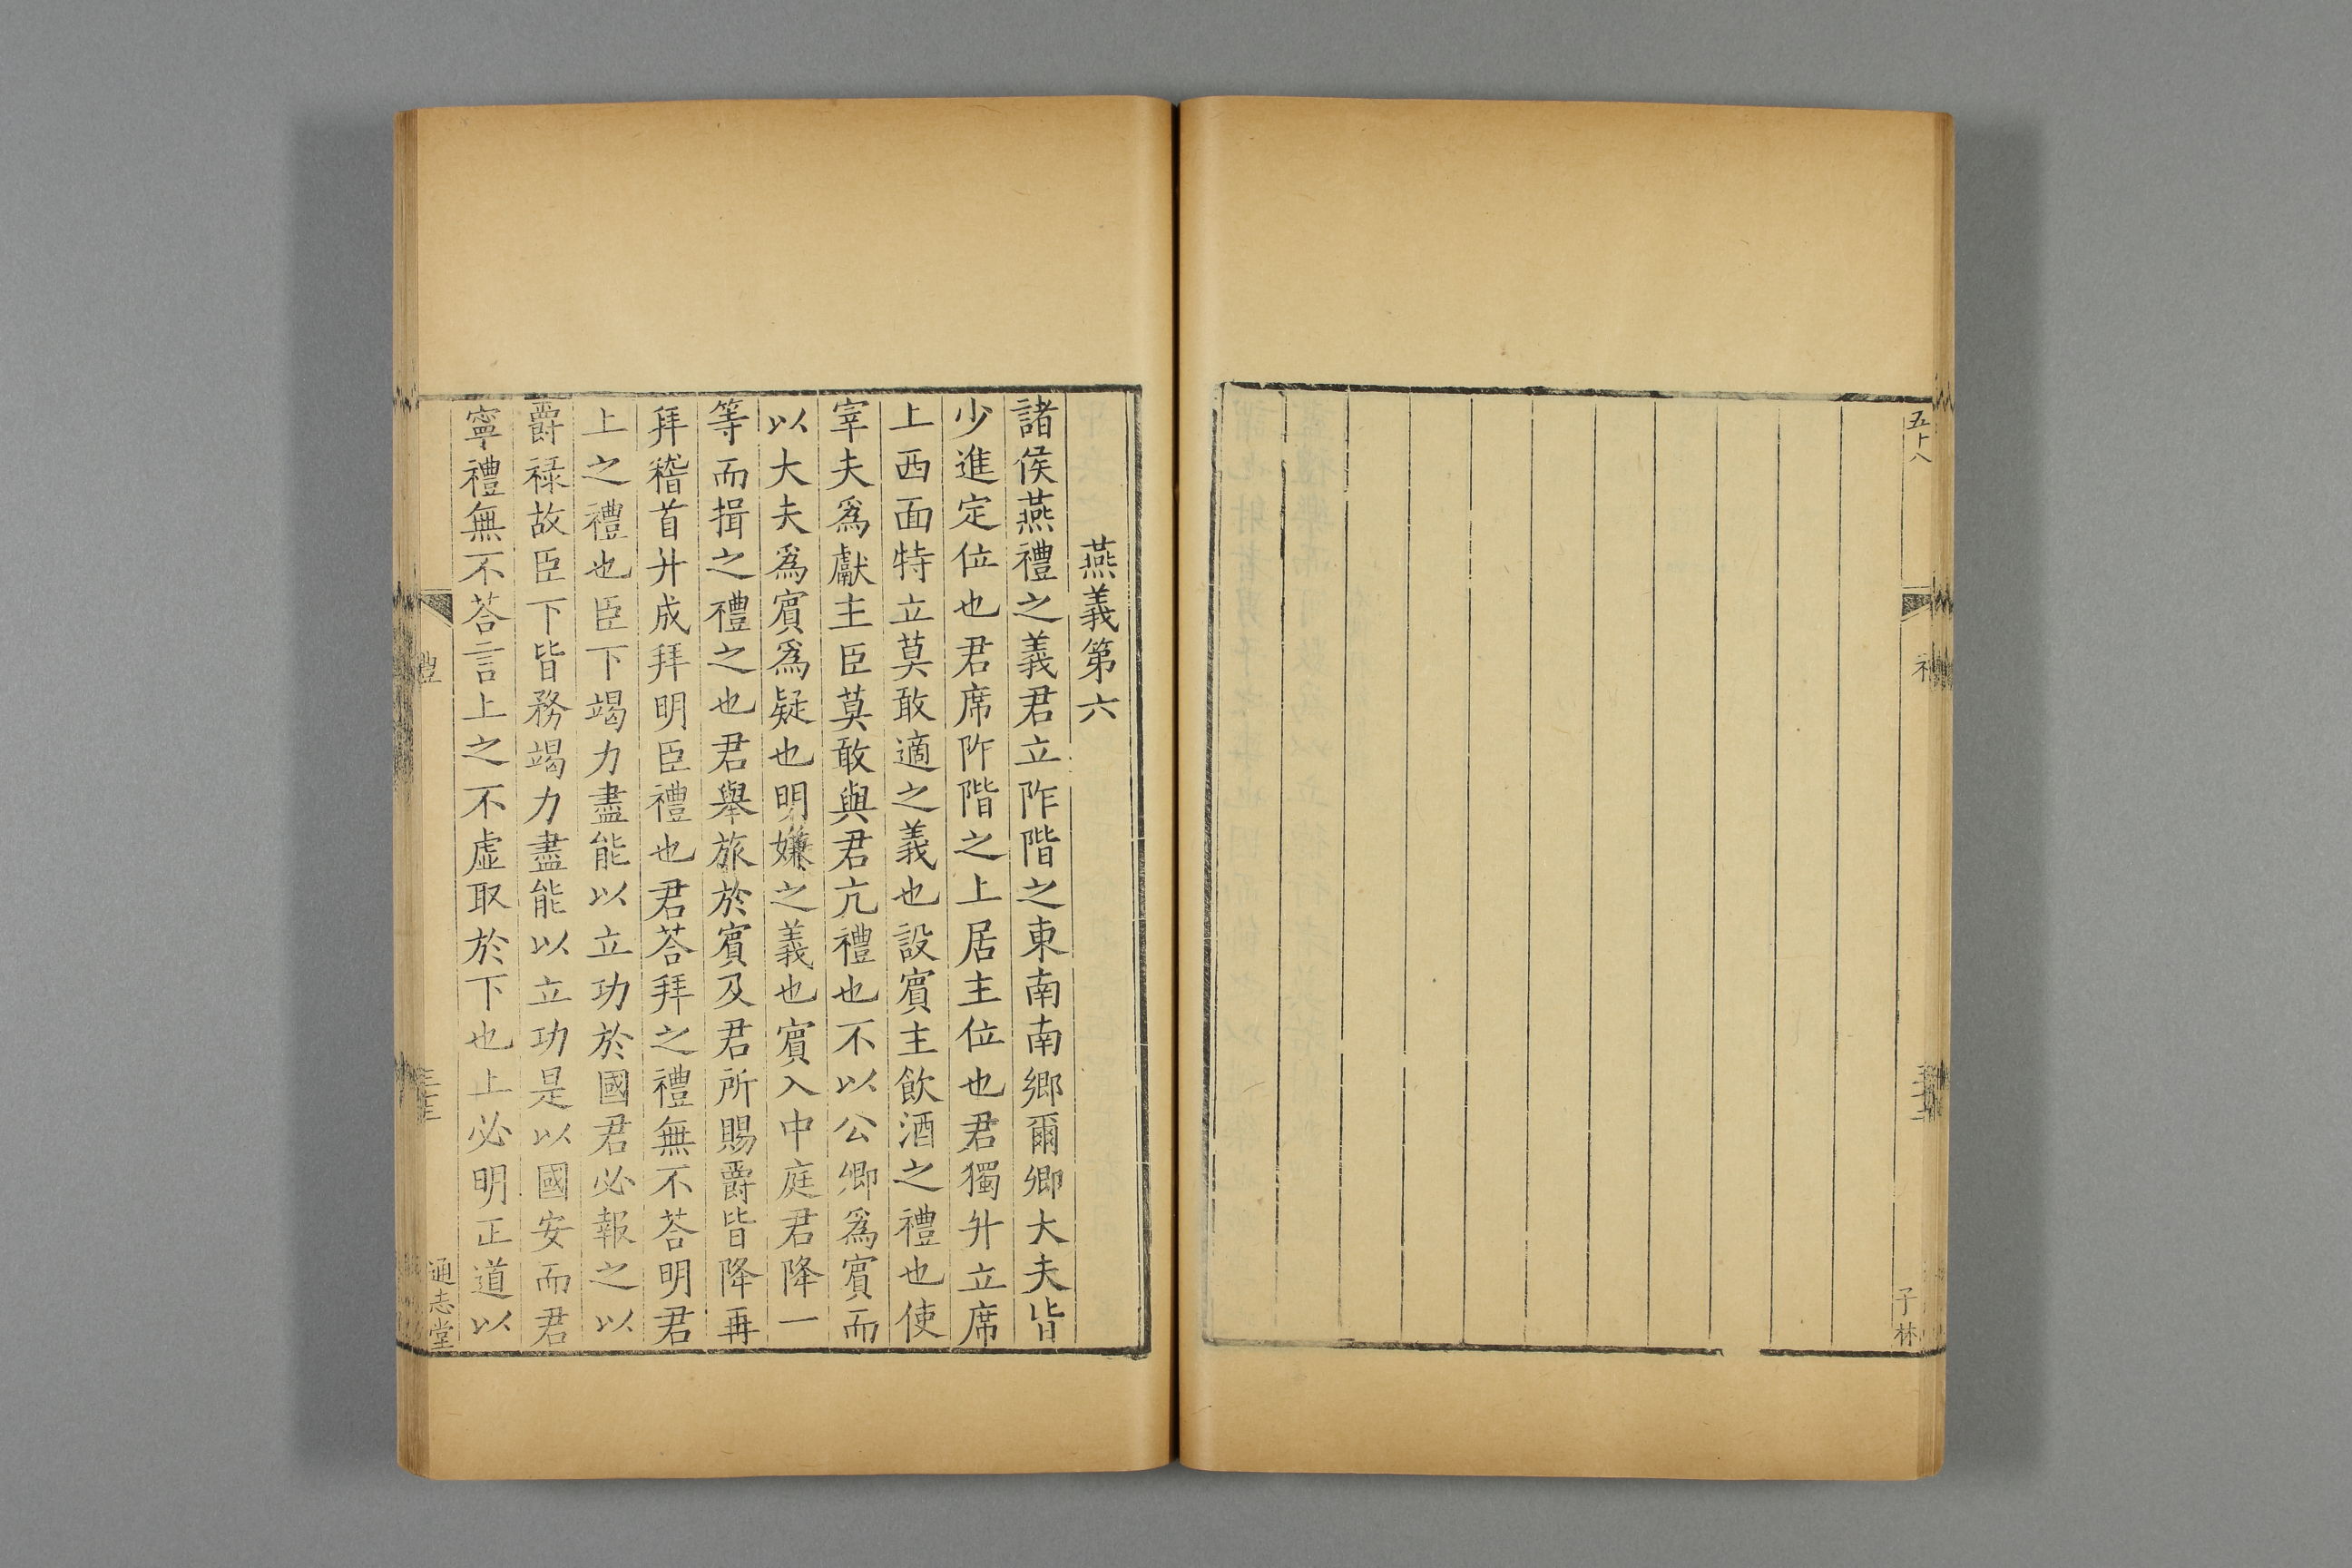 五十八
子林
燕義第六
諸侯燕禮之義君立阼階之東南南鄉爾卿大夫皆
少進定位也君席阼階之上居主位也君獨升立席
上西面特立莫敢適之義也設賓主飲酒之禮也使
宰夫爲獻主臣莫敢與君亢禮也不以公卿爲賓而
以大夫爲賓爲疑也明嫌之義也賓入中庭君降一
等而揖之禮之也君舉旅於賓及君所賜爵皆降再
拜稽首升成拜明臣禮也君荅拜之禮無不荅明君
上之禮也臣下竭力盡能以立功於國君必報之以
爵祿故臣下皆務竭力盡能以立功是以國安而君
寧禮無不荅言上之不虛取於下也上必明正道以
通志堂